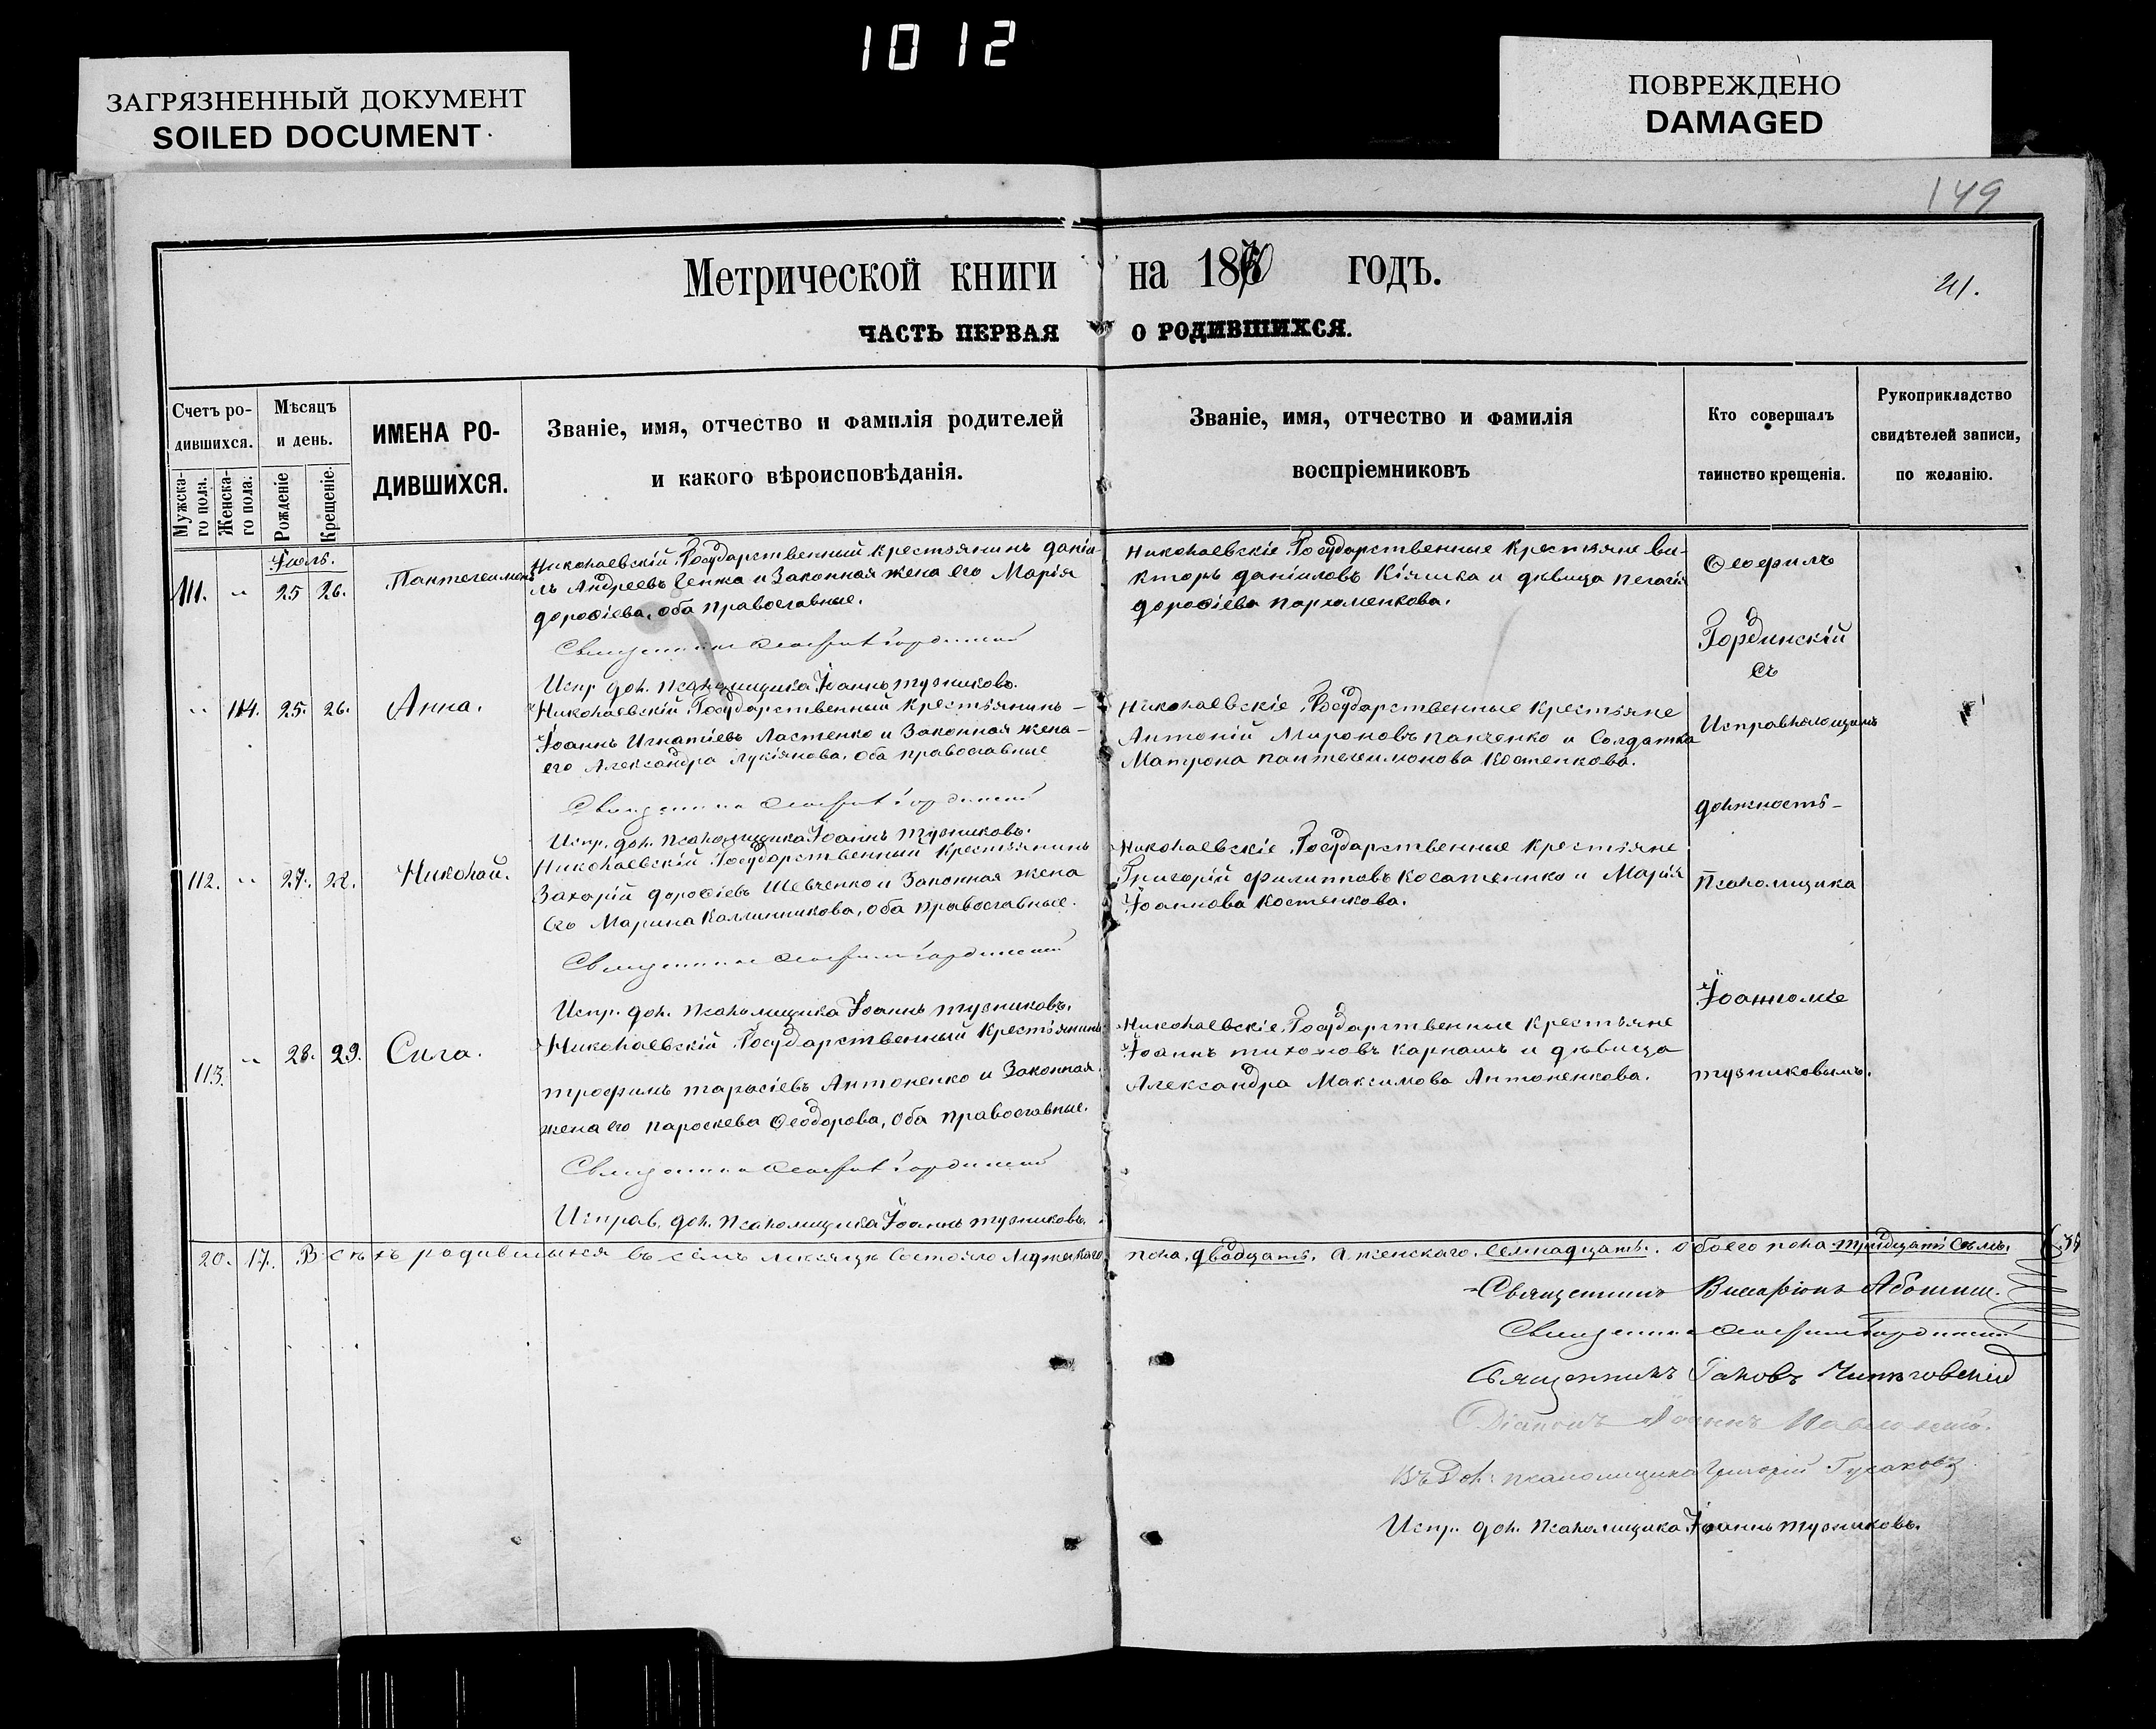 1012
ЗАГРЯЗНЕННЫЙ ДОКУМЕНТ
SOILED DOCUMENT
ПОВРЕЖДЕНО
DAMAGED
149
Метрической книги на 1870 годъ.
21.
ЧАСТЬ ПЕРВАЯ О РОДИВШИХСЯ.
Счетъ ро-
дившихся.
Мужска-
го пола.
Женска-
го пола.
Мѣсяцъ
и день.
Рожденіе
Крещеніе.
ИМЕНА РО-
ДИВШИХСЯ.
Званіе, имя, отчество и фамилія родителей
и какого вѣроисповѣданія.
Званіе, имя, отчество и фамилія
воспріемниковъ
Кто совершалъ
таинство крещенія.
Рукоприкладство
свидѣтелей записи,
по желанію.
Іюль.
111. " 25 26. Пантелеимонъ
Николаевскій Государственный крестьянинъ Даніи-
лъ Андреевъ и Законная жена его Марія
Дорофіева, оба православные.
Священникъ Ѳеофилъ Гординскій
Испр. дол. псаломщика Іоаннъ Тузниковъ.
Николаевскіе Государственные крестьяне Ви-
кторъ Даніиловъ Кіяшка и дѣвица Пелагія
Дорофіева Пархоменкова.
" 114. 25. 26. Анна.
Николаевскій Государственный крестьянинъ
Іоаннъ Игнатіевъ Ластенко и Законная жена
его Александра Лукіянова, оба православные
Священникъ Ѳеофилъ Гординскій
Испр. дол. псаломщика Іоаннъ Тузниковъ.
Николаевскіе Государственные крестьяне
Антоній Мироновъ Панченко и Солдатка
Матрона Пантелеимонова Костенкова.
112. " 27. Николай.
Николаевскій Государственный крестьянинъ
Захарій Дорофіевъ Шевченко и Законная жена
его Марина Каллиникова, оба православные.
Священникъ Ѳеофилъ Гординскій
Испр. дол. псаломщика Іоаннъ Тузниковъ.
Николаевскіе Государственные крестьяне
Григорій Филипповъ и Марія
Іоаннова Костенкова.
113. " 28. 29. Сила.
Николаевскій Государственный крестьянинъ
Трофимъ Тарасіевъ Антоненко и Законная
жена его Параскева Ѳеодорова, оба православные.
Священникъ Ѳеофилъ Гординскій
Исправ. дол. псаломщика Іоаннъ Тузниковъ.
Николаевскіе Государственные крестьяне
Іоаннъ Тихоновъ Карнашъ и дѣвица
Александра Максимова Антоненкова.
Ѳеофилъ
Гординскій
съ
Исправляющимъ
должность
Псаломщика
Іоанномъ
Тузниковымъ.
20. 17. Всѣхъ родившихся въ семъ мѣсяцѣ состояло мужескаго пола двадцать, а женскаго семнадцать. обоего пола тридцать семь.
Священникъ Виссаріонъ
Священникъ Ѳеофилъ Гординскій
Священникъ Іаковъ
Діаконъ Іоаннъ
Въ дол: псаломщика Григорій Гусаковъ
Испр. дол. псаломщика Іоаннъ Тузниковъ.